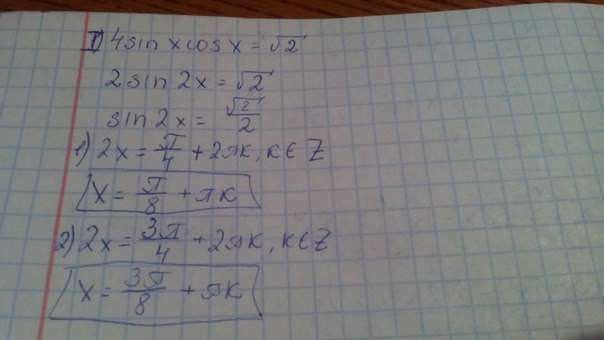 I) 4 sin x cos x = √2
2 sin 2x = √2
sin 2x = √2/2
1) 2x = π/4 + 2πk, k ∈ Z
x = π/8 + πk
2) 2x = 3π/4 + 2πk, k ∈ Z
x = 3π/8 + πk